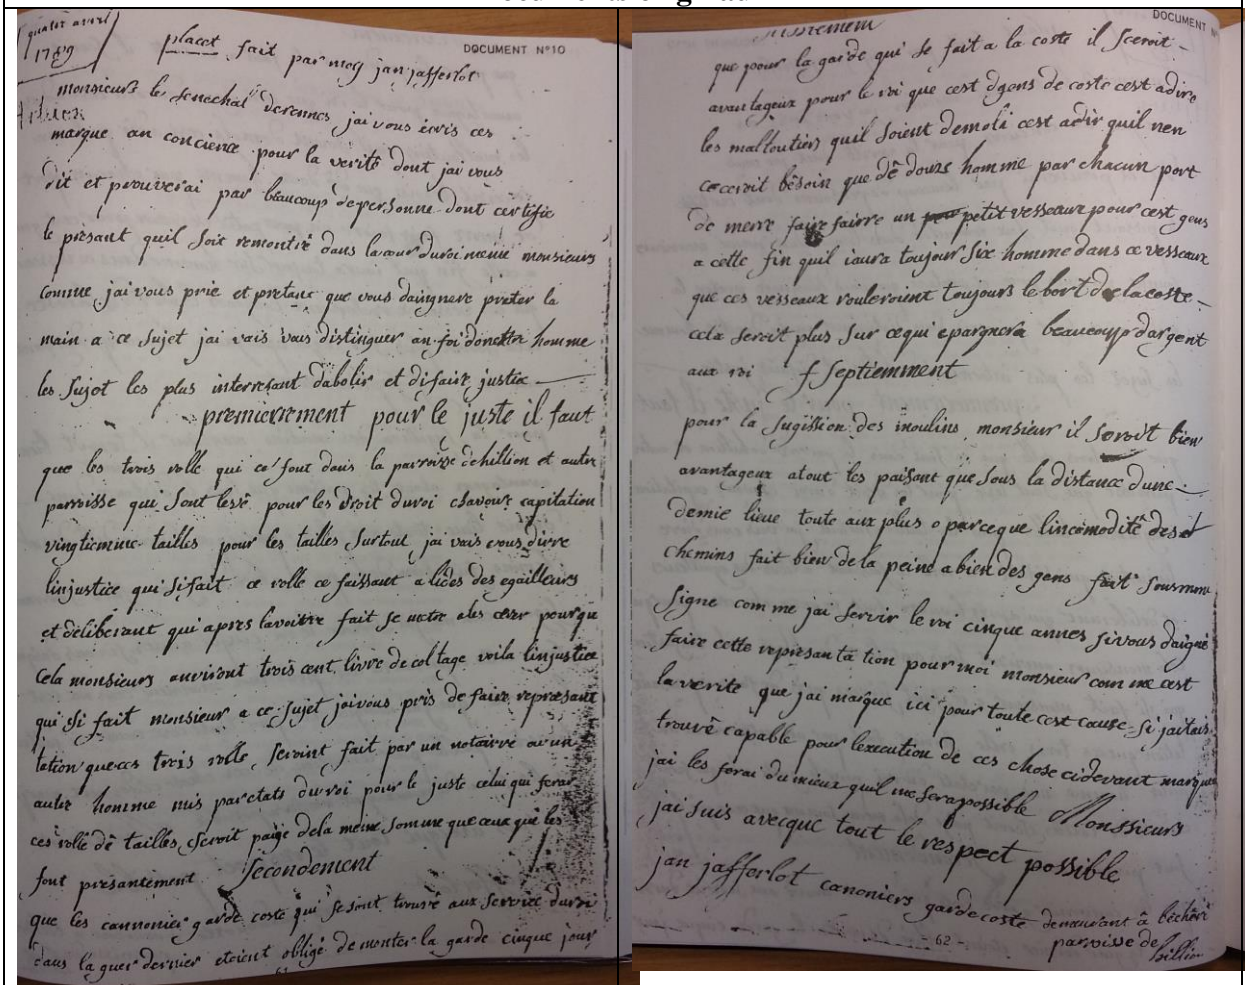 quatre avril
1789
DOCUMENT N°10
placet fait par moy jan jafferlot
monsieurs le senechal derennes jai vous ecris ces
marque an concience pour la verité dont jai vous
dit et prouverai par beaucoup depersonne dont certifie
le présant quil soit remontré dans lacour duroi meme monsieurs
comme jai vous prie et pretanc que vous daingnere préter la
main a ce sujet jai vais vous distinguer an foi donette homme
les sujot les plus interresant dabolir et difaire justice
premierement pour le juste il faut
que les trois rolle qui ce font dans la parroisse dehillion et autre
parroisse qui sont levé pour les droit duroi csavoire capitation
vingtiemme tailles pour les tailles surtout jai vais vous dirre
linjustice qui sifait ce rolle ce faissant a lides des egailleurs
et déliberant qui apres lavoitre fait se metre ales cerer pourque
cela monsieurs anviront trois cent livre decoltage voila linjustice
qui si fait monsieur a ce sujet jaivous pris de faire représant
tation queces trois rolle seroint fait par un notairre ou un
autre homme mis paretats duroi pour le juste celui qui ferar
ces rolle dé tailles cseroit paÿe dela meme somme que ceux que les
font présantement secondement
que les cannonier garde coste qui se sont trouvé aux service duroi
dans laguer dernier etoient obligé de monter la garde cinque jour
DOCUMENT N°
que pour la garde qui se fait a la coste il sceroit
avantageux pour le roi que cest dgens de coste cest adire
les malloutiers quil soient demoli cest adir quil nen
ceceroit besoin que dé douze homme par chacun port
de merre faire fairre un petit vesseaux pour cest gens
a cette fin quil iaura toujour six homme dans ce vesseaux
que ces vesseaux rouleroient toujours le bort de lacoste
cela seroit plus sur cequi epargnera beaucoup dargent
aux roi septiemment
pour la sugission des moulins monsieur il seroit bien
avantageux atout les paisant que sous la distance dune
demie lieue toute aux plus o parceque lincomodité des
chemins fait bien dela peine abien des gens fait sousmon
signe comme jai servir le roi cinque annes sivous daigné
faire cette représantation pour moi monsieur comme cest
la verite que jai marque ici pour toute cest cause si jaitais
trouvé capable pour lexecution de ces chose cidevant marque
jai les ferai dumieux quil me serapossible Monssieurs
jai suis avecque tout le respect possible
jan jafferlot canoniers gardecoste demeurant à béchéré
- 62 - parroisse de
hillion